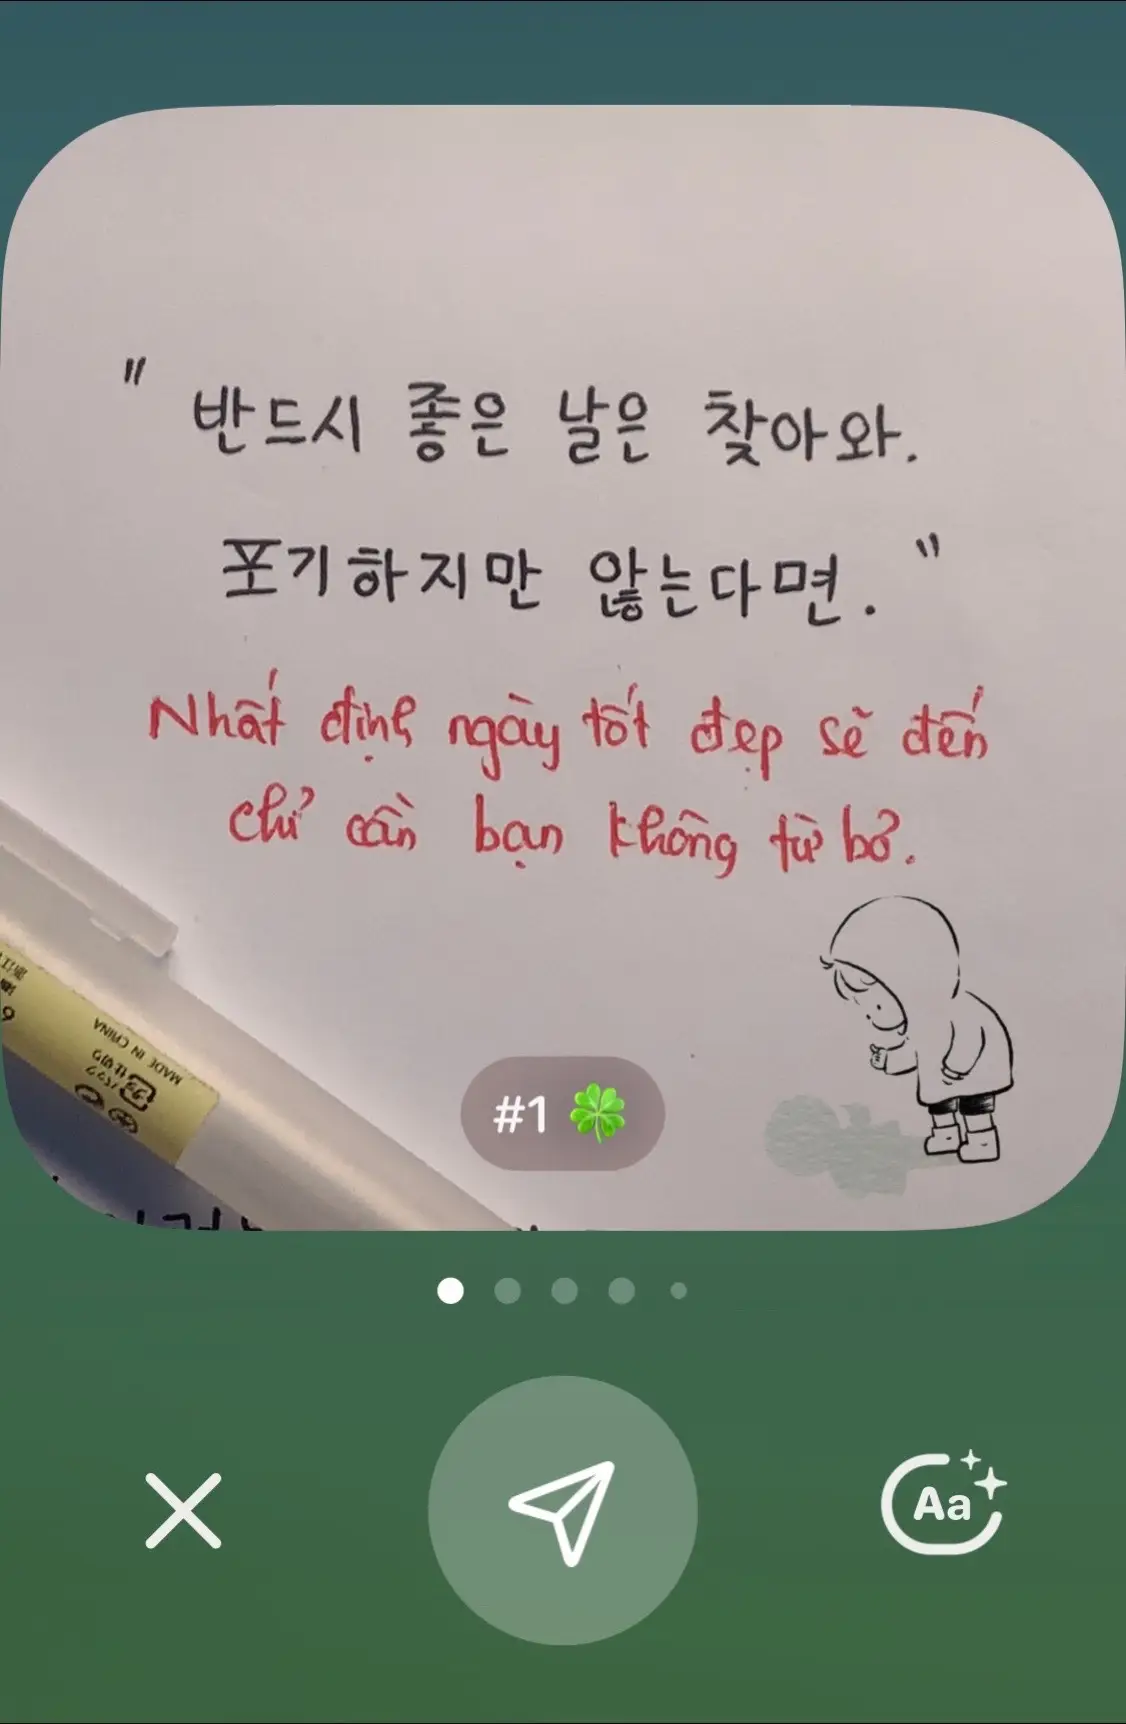 " 반드시 좋은 날은 찾아와.
포기하지만 않는다면. "
Nhất định ngày tốt đẹp sẽ đến
chỉ cần bạn không từ bỏ.
MADE IN CHINA
#1 🍀
Aa